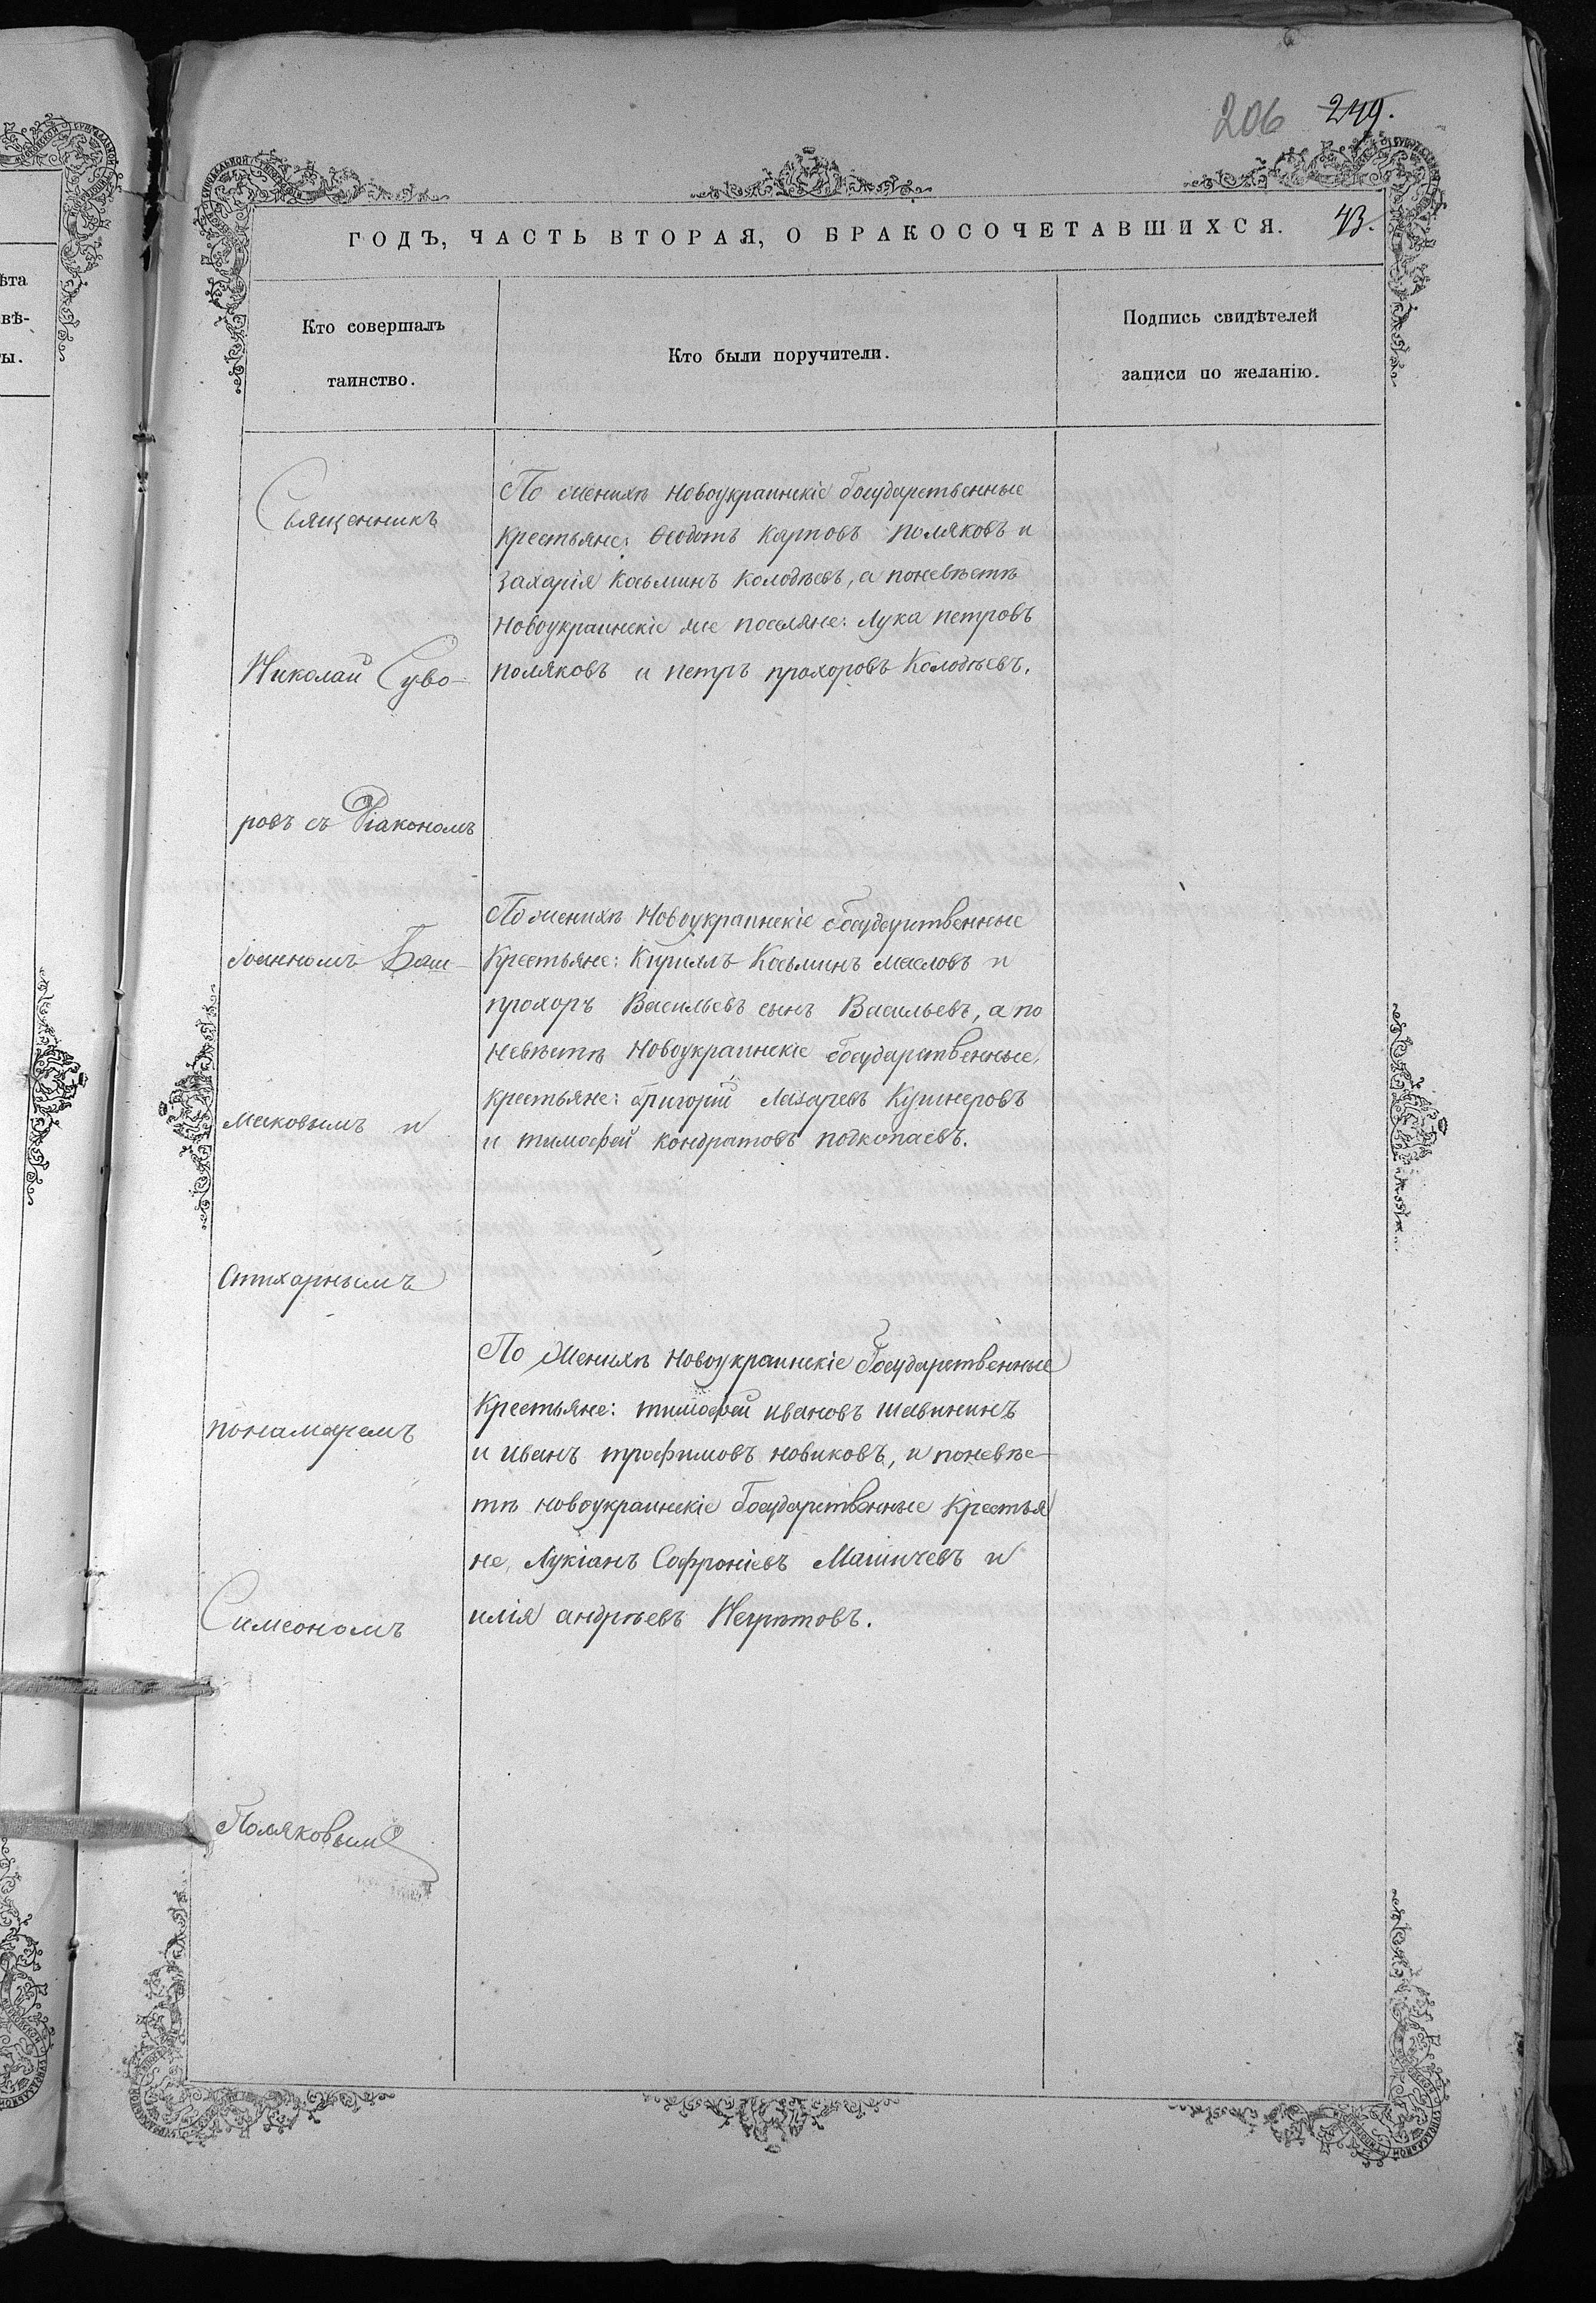 206 249.
ГОДЪ, ЧАСТЬ ВТОРАЯ, О БРАКОСОЧЕТАВШИХСЯ. 43.
ѣта
вѣ-
ы.
Кто совершалъ
таинство.
Кто были поручители.
Подпись свидѣтелей
записи по желанію.
Священникъ
Николай Суво-
ровъ съ Діакономъ
Іоанномъ Баш-
маковымъ и
стихарнымъ
понамаремъ
Симеономъ
Поляковым
По женихѣ новоукраинскіе Государственные
крестьяне: Ѳеодотъ Карповъ Поляковъ и
Захарія Косьминъ Колодѣевъ, а поневѣстѣ
новоукраинскіе же поселяне: Лука петровъ
поляковъ и петръ прохоровъ Колодѣевъ.
По женихѣ Новоукраинскіе Государственные
Крестьяне: Кириллъ Косьминъ масловъ и
прохоръ Васильевъ сынъ Васильевъ, а по
невѣстѣ Новоукраинскіе Государственные
крестьяне: Григорій Лазаревъ Кушнеровъ
и тимофей кондратовъ подкопаевъ.
По Женихѣ новоукраинскіе Государственные
Крестьяне: тимофей ивановъ шавинъ
и иванъ трофимовъ новиковъ, и поневѣс-
тѣ новоукраинскіе Государственные Крестья
не, Лукіанъ Софроніевъ Машичевъ и
илія андрѣевъ Негрѣтовъ.